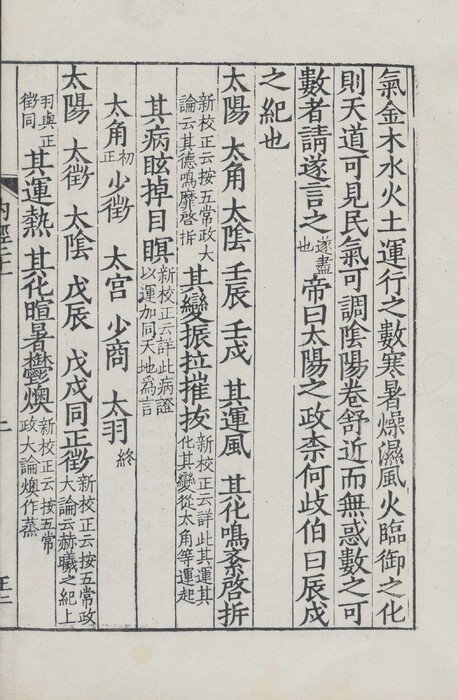 氣金木水火土運行之數寒暑燥濕風火臨御之化
則天道可見民氣可調陰陽卷舒近而無惑數之可
數者請遂言之遂盡也帝曰太陽之政柰何歧伯曰辰戌
之紀也
太陽 太角 太陰 壬辰 壬戌 其運風 其化鳴紊啓拆
新校正云按五常政大論云其德鳴靡啓拆其變振拉摧拔新校正云詳此其運其化其變從太角等運起
其病眩掉目瞑新校正云詳此病證以運加同天地為言
太角初正 少徵 太宮 少商 太羽終
太陽 太徵 太陰 戊辰 戊戌同正徵新校正云按五常政大論云赫曦之紀上
羽與正徵同其運熱 其化暄暑鬱燠新校正云按五常政大論燠作蒸